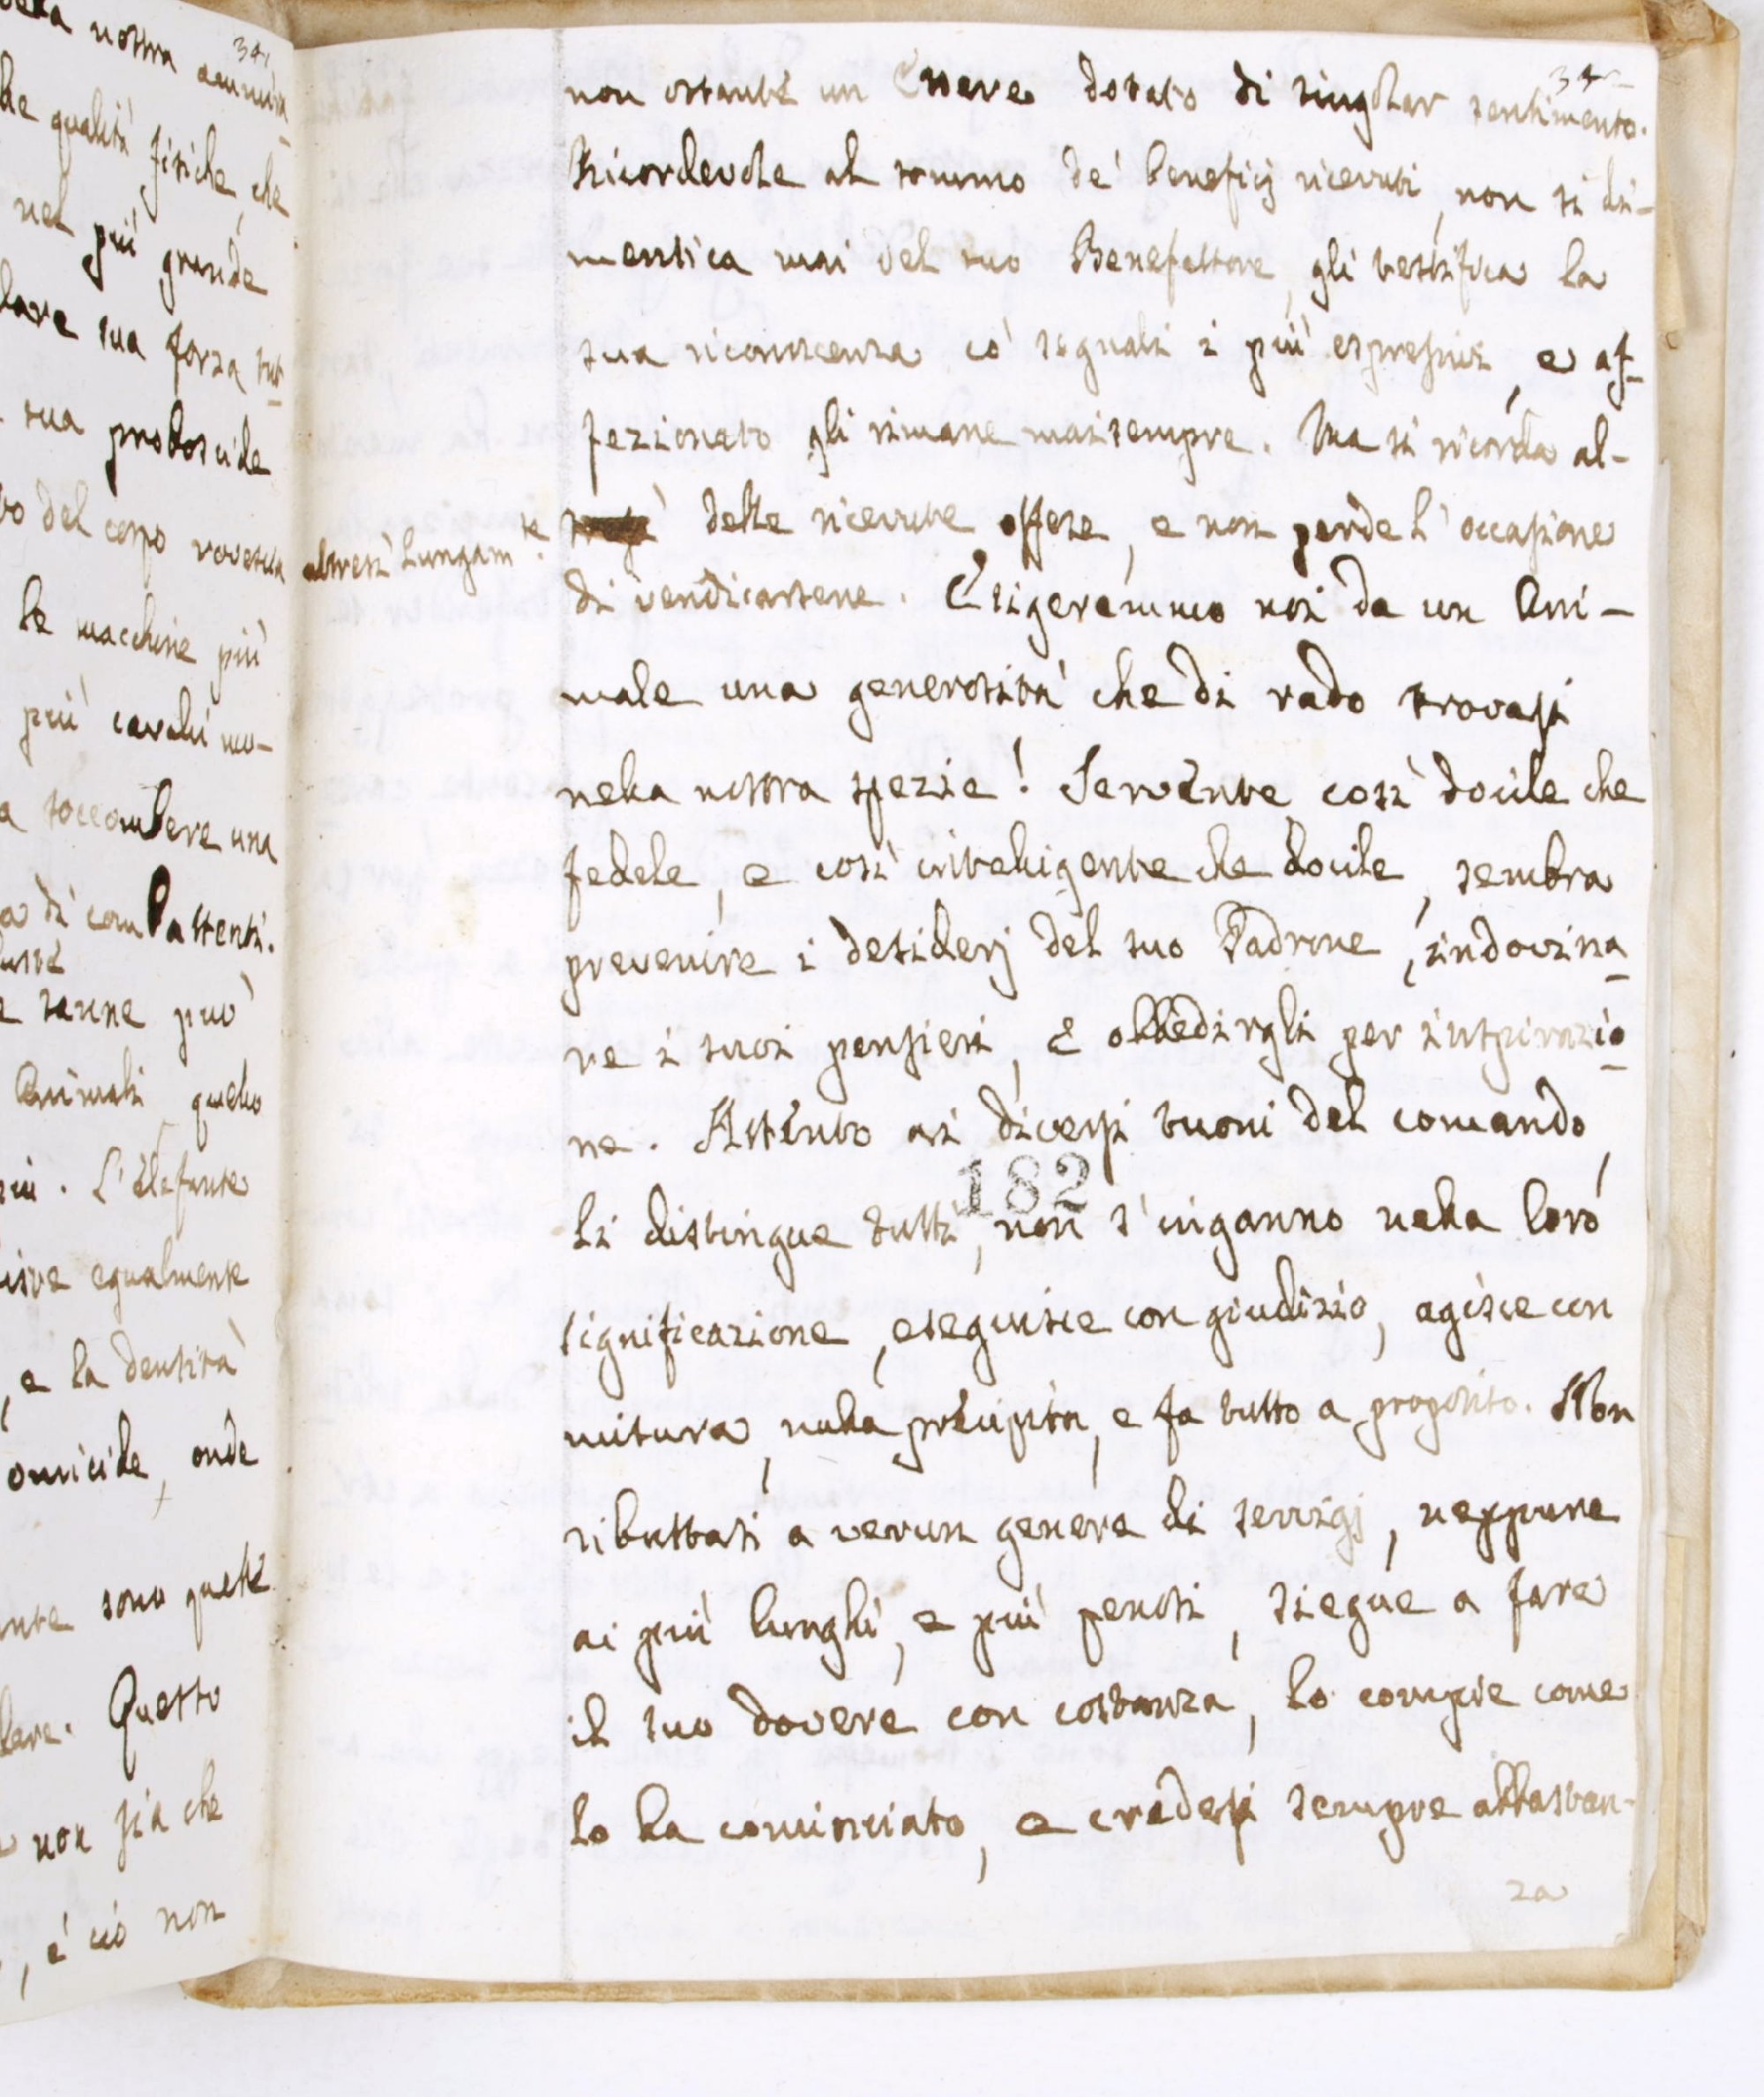 341
nostra ammira-
qualità fisiche, che
nel più grande
sua forza tut-
sua proboscide
del corpo rovescia
le macchine più
più carichi mo-
a soccombere una
a di combattenti.
zanne può
Animali quello
L'Elefante
egualmente
, e la densità
omicide, onde
sono queste
Questo
non sia che
, e ciò non
342
non ostante un Essere dotato di singolar sentimento.
Ricordevole al sommo de' beneficj ricevuti, non si di-
mentica mai del suo Benefattore, gli testifica la
sua riconoscenza co' segnali i più espressivi, e af-
fezionato gli rimane maisempre. Ma si ricorda al-
altresì lungam.te delle ricevute offese, e non perde l'occasione
di vendicarsene. Esigeremmo noi da un Ani-
male una generosità che di rado trovasi
nella nostra spezie! Servente così docile che
fedele, e così intelligente che docile, sembra
prevenire i desiderj del suo Padrone, indovina-
re i suoi pensieri, e obbedirgli per inspirazio-
ne. Attento ai diversi tuoni del comando,
182
li distingue tutti, non s'inganno nella loro
significazione, eseguisce con giudizio, agisce con
misura, nulla precipita, e fa tutto a proposito. Non
ributtasi a verun genere di servigj, neppure
ai più lunghi, e più penosi, siegue a fare
il suo dovere con costanza, lo compie come
lo ha cominciato, e credesi sempre abbastan-
za